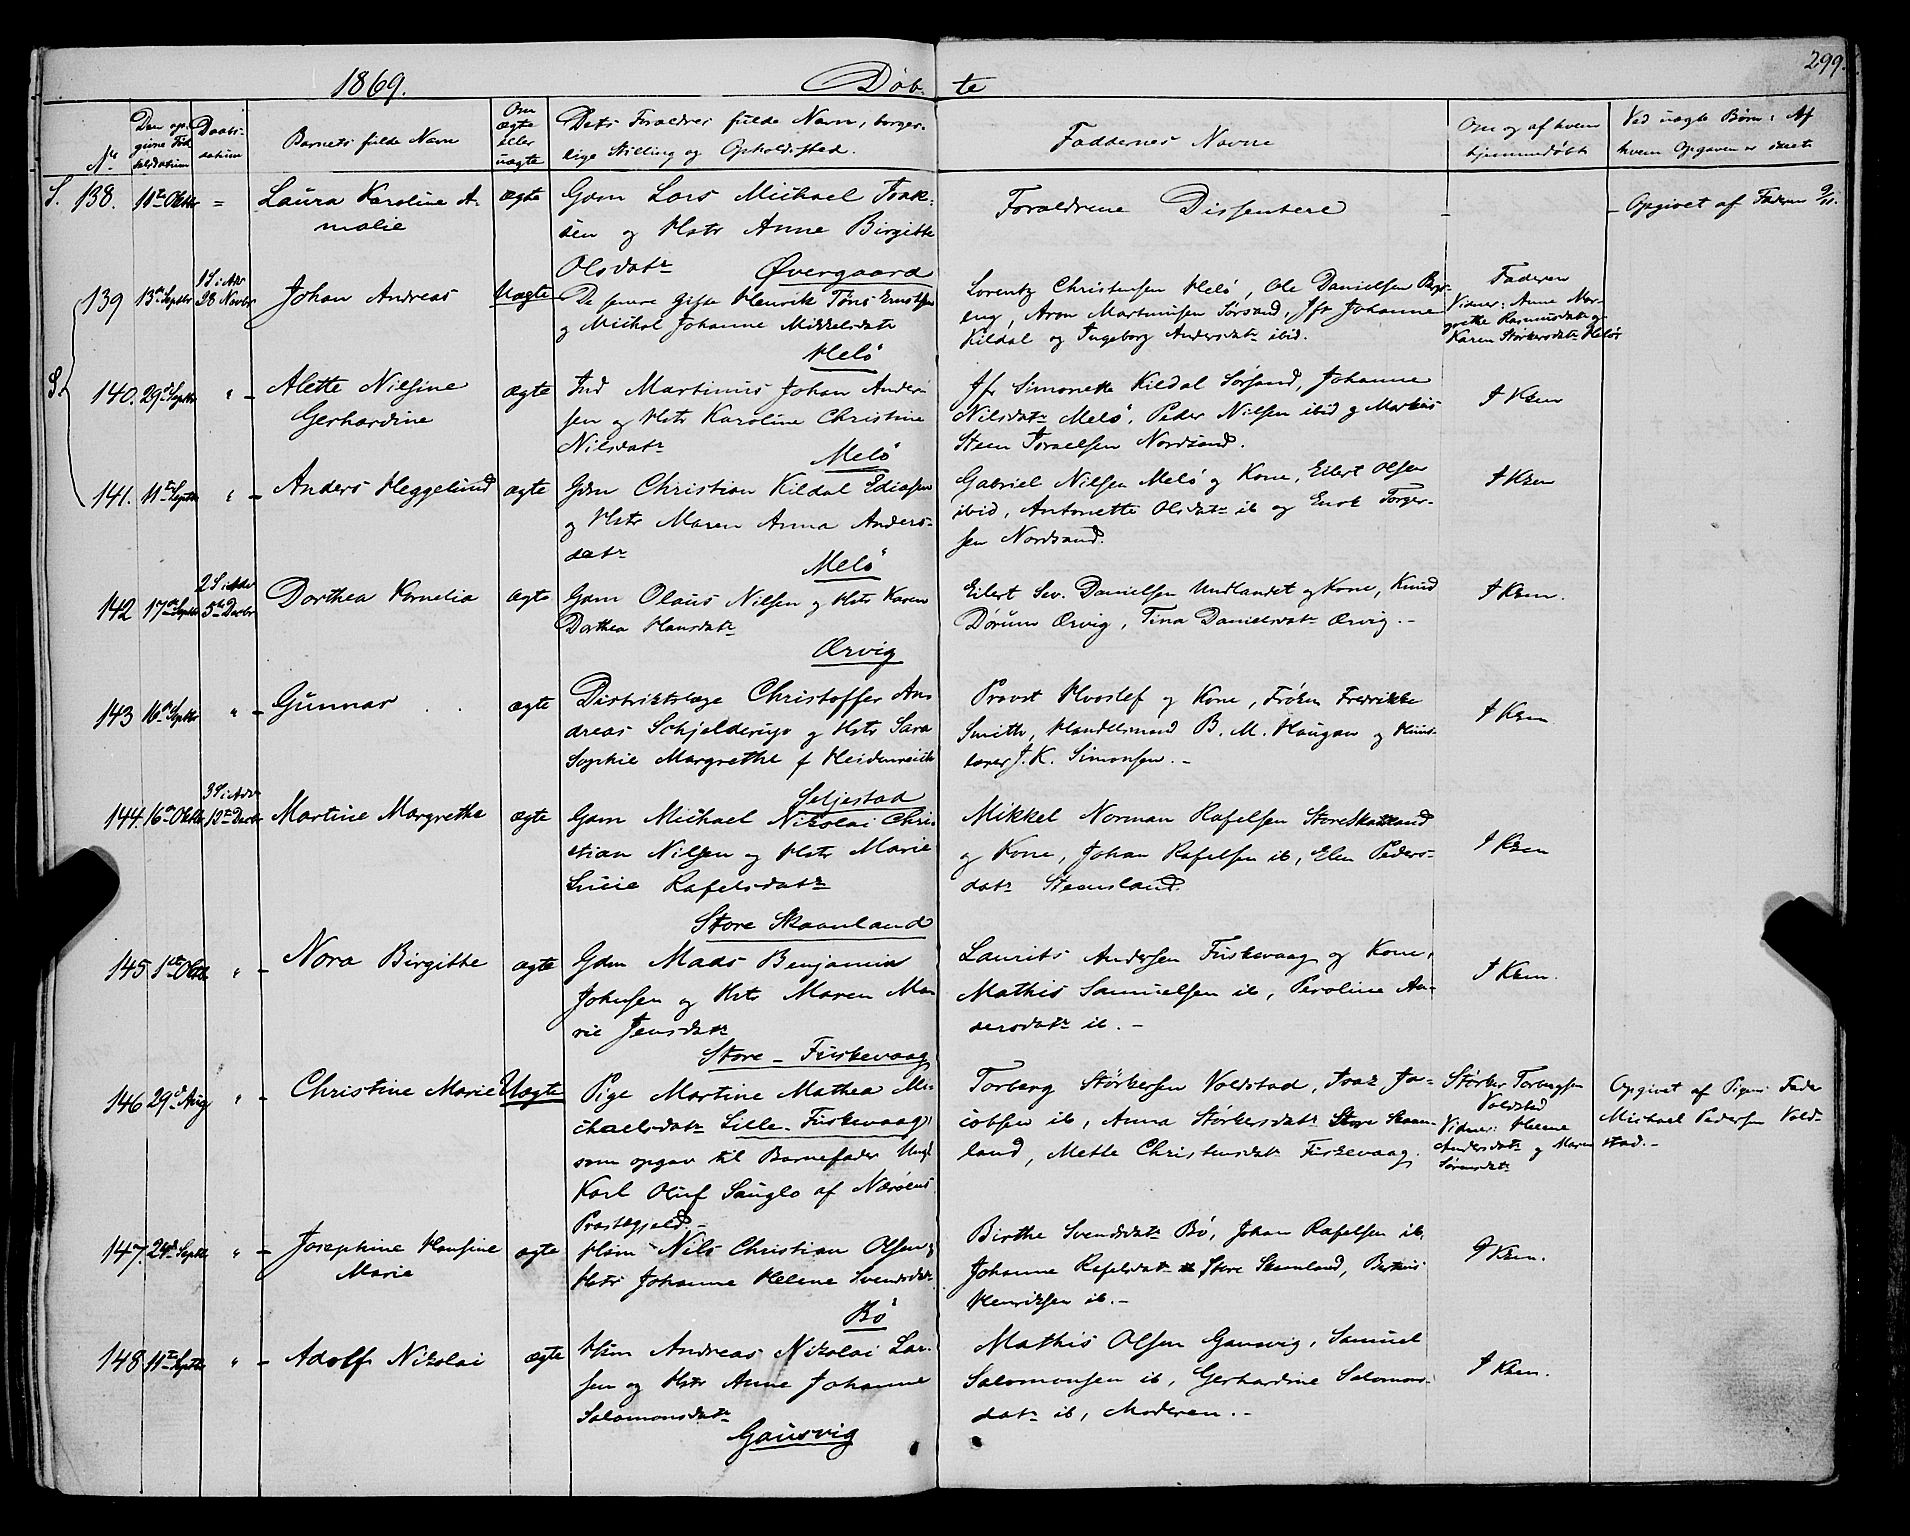 299.
1869. Døb- te
No
Den op-
givne Fød-
selsdatum
Daabs-
datum
Barnets fulde Navn
Om
ægte
eller
uægte
Dets Forældres fulde Navn, borger-
lige Stilling og Opholdssted.
Faddernes Navne
Om og af hvem
hjemmedøbt
Ved uægte Børn: Af
hvem Opgaven er skeet
S. 138. 11te Oktbr =
Laura Karoline A-
malie
ægte
Gdm Lars Michael Isak-
sen og Hstr Anne Birgitte
Olsdatr Øvergaard
Forældrene Dissentere
Opgivet af Faderen 9/11.
139 13de Septbr
1 S i Adv
28 Novbr
Johan Andreas
Uægte
De senere gifte Henrik Tøns Erntsen
og Michal Johanne Mikkelsdatr
Melö
Lorentz Christensen Melö, Ole Danielsen Berg-
eng, Aron Martinusen Sørsand, Jfr Johanne
Kildal og Ingeborg Andersdatr ibid.
Faderen
Vidner: Anne Mar-
grethe Rasmusdatr og
Karen Størkersdatr Melöe
S. 140. 29de Septbr " -
Alette Nilsine
Gerhardine
ægte
Ind Martinus Johan Ander-
sen og Hstr Karoline Christine
Nilsdatr
Melö
Jfr Simonette Kildal Sørsand, Johanne
Nilsdatr Melö, Peder Nilsen ibid og Markus
Steen Israelsen Nordsand.
I Kken
141. 11te Septbr " -
Anders Heggelund
ægte
Gdm Christian Kildal Ediasen
og Hstr Maren Anna Anders-
datr
Melö
Gabriel Nilsen Melö og Kone, Eilert Olsen
ibid, Antonette Olsdatr ib og Enok Torger-
sen Nordsand.
I Kken
142 17de Septbr
2 S i Adv
5te Decbr
Dorthea Kornelia
ægte
Gdm Olaus Nilsen og Hstr Karen
Dorthea Hansdatr
Ærvig
Eilert Sev. Danielsen Undlandet og Kone, Knud
Dørum Ærvig, Tina Danielsdatr Ærvig. -
I Kken.
143 16de Septbr " -
Gunnar
ægte
Distriktslæge Christoffer An-
dreas Schjelderup og Hstr Sara
Sophie Margrethe f Heidenreich
Seljestad
Provst Hvoslef og Kone, Frøken Fredrikke
Smith, Handelsmand B. M. Haugan og Huus-
lærer J. K. Simonsen. -
I Kken
144. 16de Oktbr
3 S i Adv
12te Decbr
Martine Margrethe
ægte
Gdm Michael Nikolai Chri-
stian Nilsen og Hstr Marie
Lucie Rafelsdatr
Store Skaanland
Mikkel Norman Rafelsen Store Skaanland
og Kone, Johan Rafelsen ib, Elen Peders-
datr Steinsland.
I Kken
145. 1ste Oktb " -
Nora Birgitte
ægte
Gdm Mads Benjamin
Johnsen og Hstr Maren Ma-
rie Jensdatr
Store - Fuskevaag
Laurits Andersen Fuskevaag og Kone,
Mathis Samuelsen ib, Peroline An-
dersdatr ib. -
I Kken.
146 29de Aug " -
Christine Marie
Uægte
Pige Martine Mathea Mi-
chaelsdatr Lille-Fuskevaag,
som opgav til Barnefader Ungk
Karl Oluf Sauglo af Nærøens
Præstegjeld. -
Torberg Størkersen Voldstad, Isak Ja-
cobsen ib, Anna Størkersdatr Store Skaan-
land, Mette Christensdatr Fuskevaag.
Størker Torbergsen
Voldstad
Vidner: Helene
Andersdatr og Maren
Sørensdatr
Opgivet af Pigens Fader
Michael Pedersen Vold-
stad. -
147. 24de Septbr " -
Josephine Hansine
Marie
ægte
Hsm Nils Christian Olsen og
Hstr Johanne Helene Svendsdatr
Bö
Birthe Svendsdatr Bö, Johan Rafelsen ib,
Johanne Rafelsdatr Store Skaanland, Berteus
Henriksen ib. -
I Kken.
148 11te Septbr " -
Adolf Nikolai
ægte
Hsm Andreas Nikolai Lar-
sen og Hstr Anne Johanne
Salomonsdatr
Gausvig
Mathis Olsen Gausvig, Samuel
Salomonsen ib, Gerhardine Salomons-
datr ib, Moderen. -
I Kken.